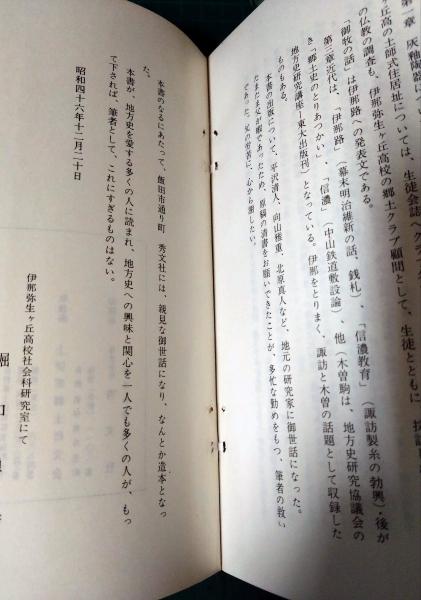 第一章 灰釉陶器に
ヶ丘高の土師式住居址については、生徒会誌へクラブ
の仏教の調査も、伊那弥生ヶ丘高校の郷土クラブ顧問として、生徒とともに
「御牧の話」は伊那路への発表文である。
第三章近代は、「伊那路」(幕末明治維新の話、銭札)、「信濃教育」(諏訪製糸の勃興)・後が
き「郷土史のとりあつかい」、「信濃」(中山鉄道敷設論)、他(木曽駒は、地方史研究協議会の
地方史研究講座―東大出版刊)となっている。伊那をとりまく、諏訪と木曽の話題として収録した
ものもある。
本書の出版について、平沢清人、向山雅重、北原真人など、地元の研究家に御世話になった。
たまたま父が暇であったため、原稿の清書をお願いできたことが、多忙な勤めをもつ、筆者の救い
であった。父の労苦に、心から謝したい。
本書のなるにあたって、飯田市通り町 秀文社には、親見な御世話になり、なんとか造本となっ
た。
本書が、地方史を愛する多くの人に読まれ、地方史への興味と関心を一人でも多くの人が、もっ
て下されば、筆者として、これにすぎるものはない。
昭和四十六年十二月二十日
伊那弥生ヶ丘高校社会科研究室にて
堀口